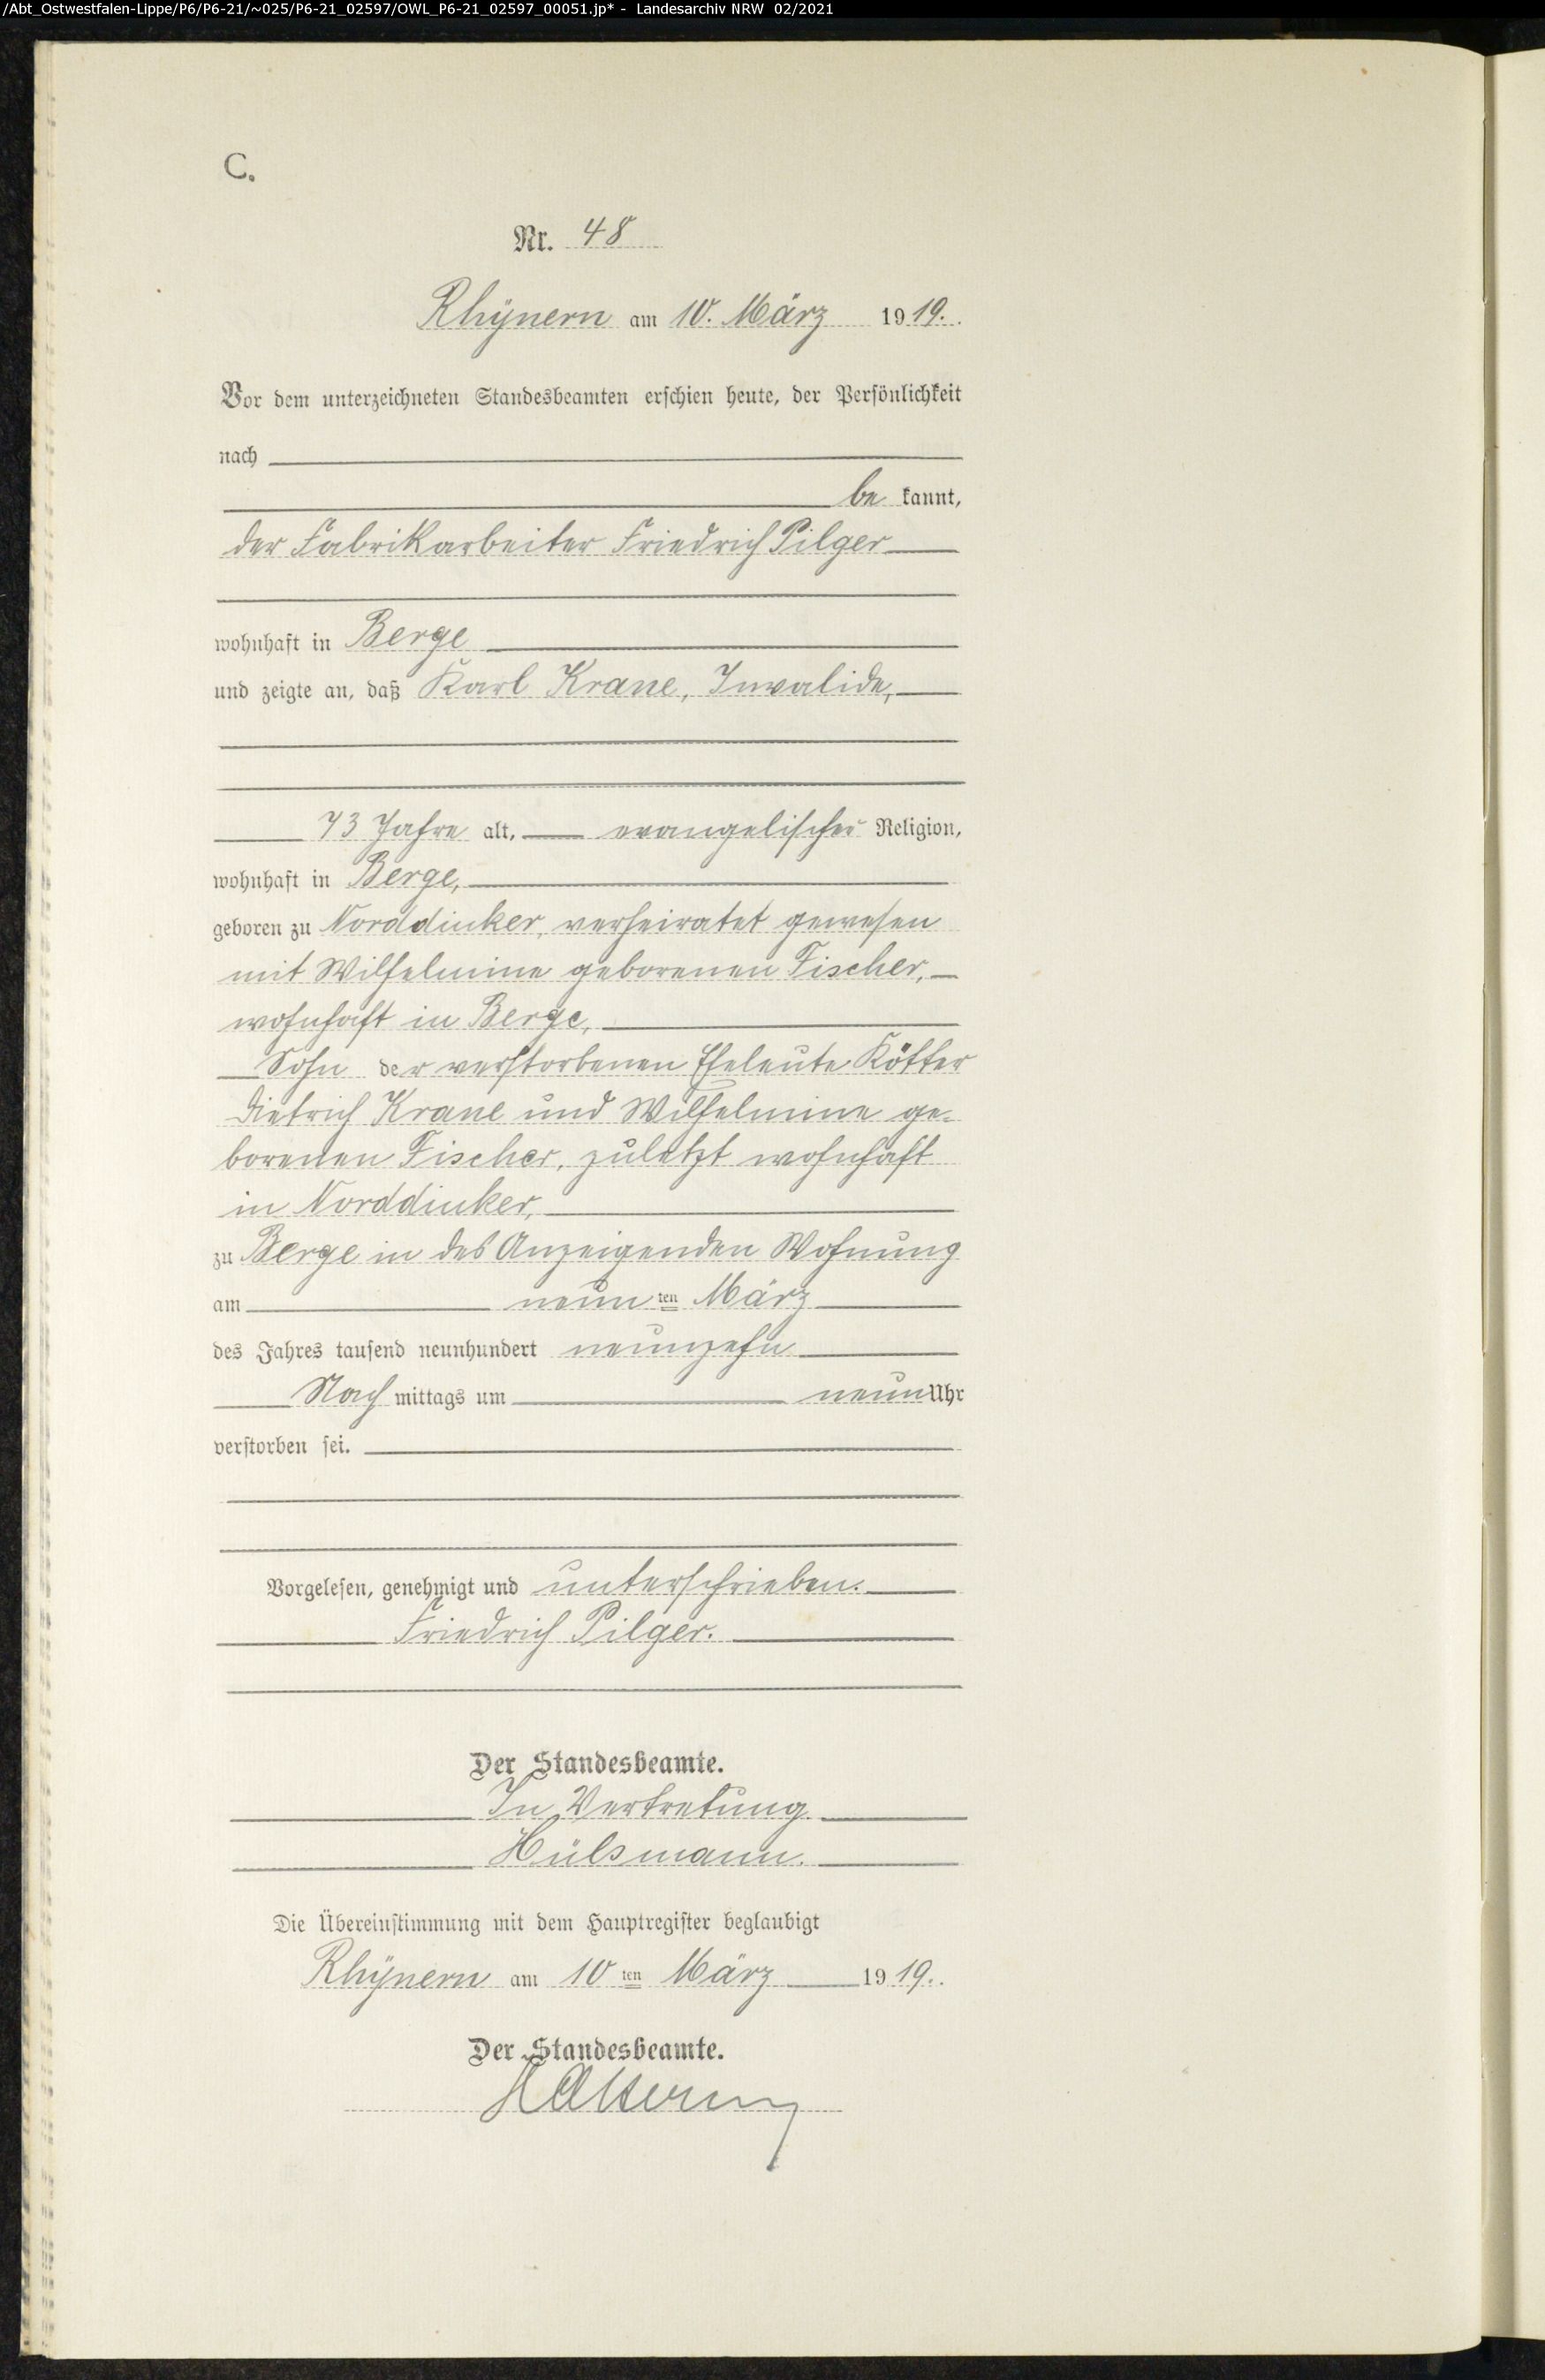 /Abt_Ostwestfalen-Lippe/P6/P6-21/~025/P6-21_02597/OWL_P6-21_02597_00051.jp* - Landesarchiv NRW 02/2021
C.
Nr. 48
Rhÿnern am 10. März 1919.
Vor dem unterzeichneten Standesbeamten erschien heute, der Persönlichkeit
nach
be kannt,
der Fabrikarbeiter Friedrich Pilger
wohnhaft in Berge
und zeigte an, daß Karl Krane, Invalide,
73 Jahre alt, evangelischer Religion,
wohnhaft in Berge,
geboren zu Norddinker, verheiratet gewesen
mit Wilhelmine geborenen Fischer,
wohnhaft in Berge,
Sohn der verstorbenen Eheleute Kötter
Dietrich Krane und Wilhelmine ge-
borenen Fischer, zuletzt wohnhaft
in Norddinker,
zu Berge in des Anzeigenden Wohnung
am neun ten März
des Jahres tausend neunhundert neunzehn
Nach mittags um neun Uhr
verstorben sei.
Vorgelesen, genehmigt und unterschrieben.
Friedrich Pilger.
Der Standesbeamte.
In Vertretung.
Hülsmann.
Die Übereinstimmung mit dem Hauptregister beglaubigt
Rhÿnern am 10 ten März 1919.
Der Standesbeamte.